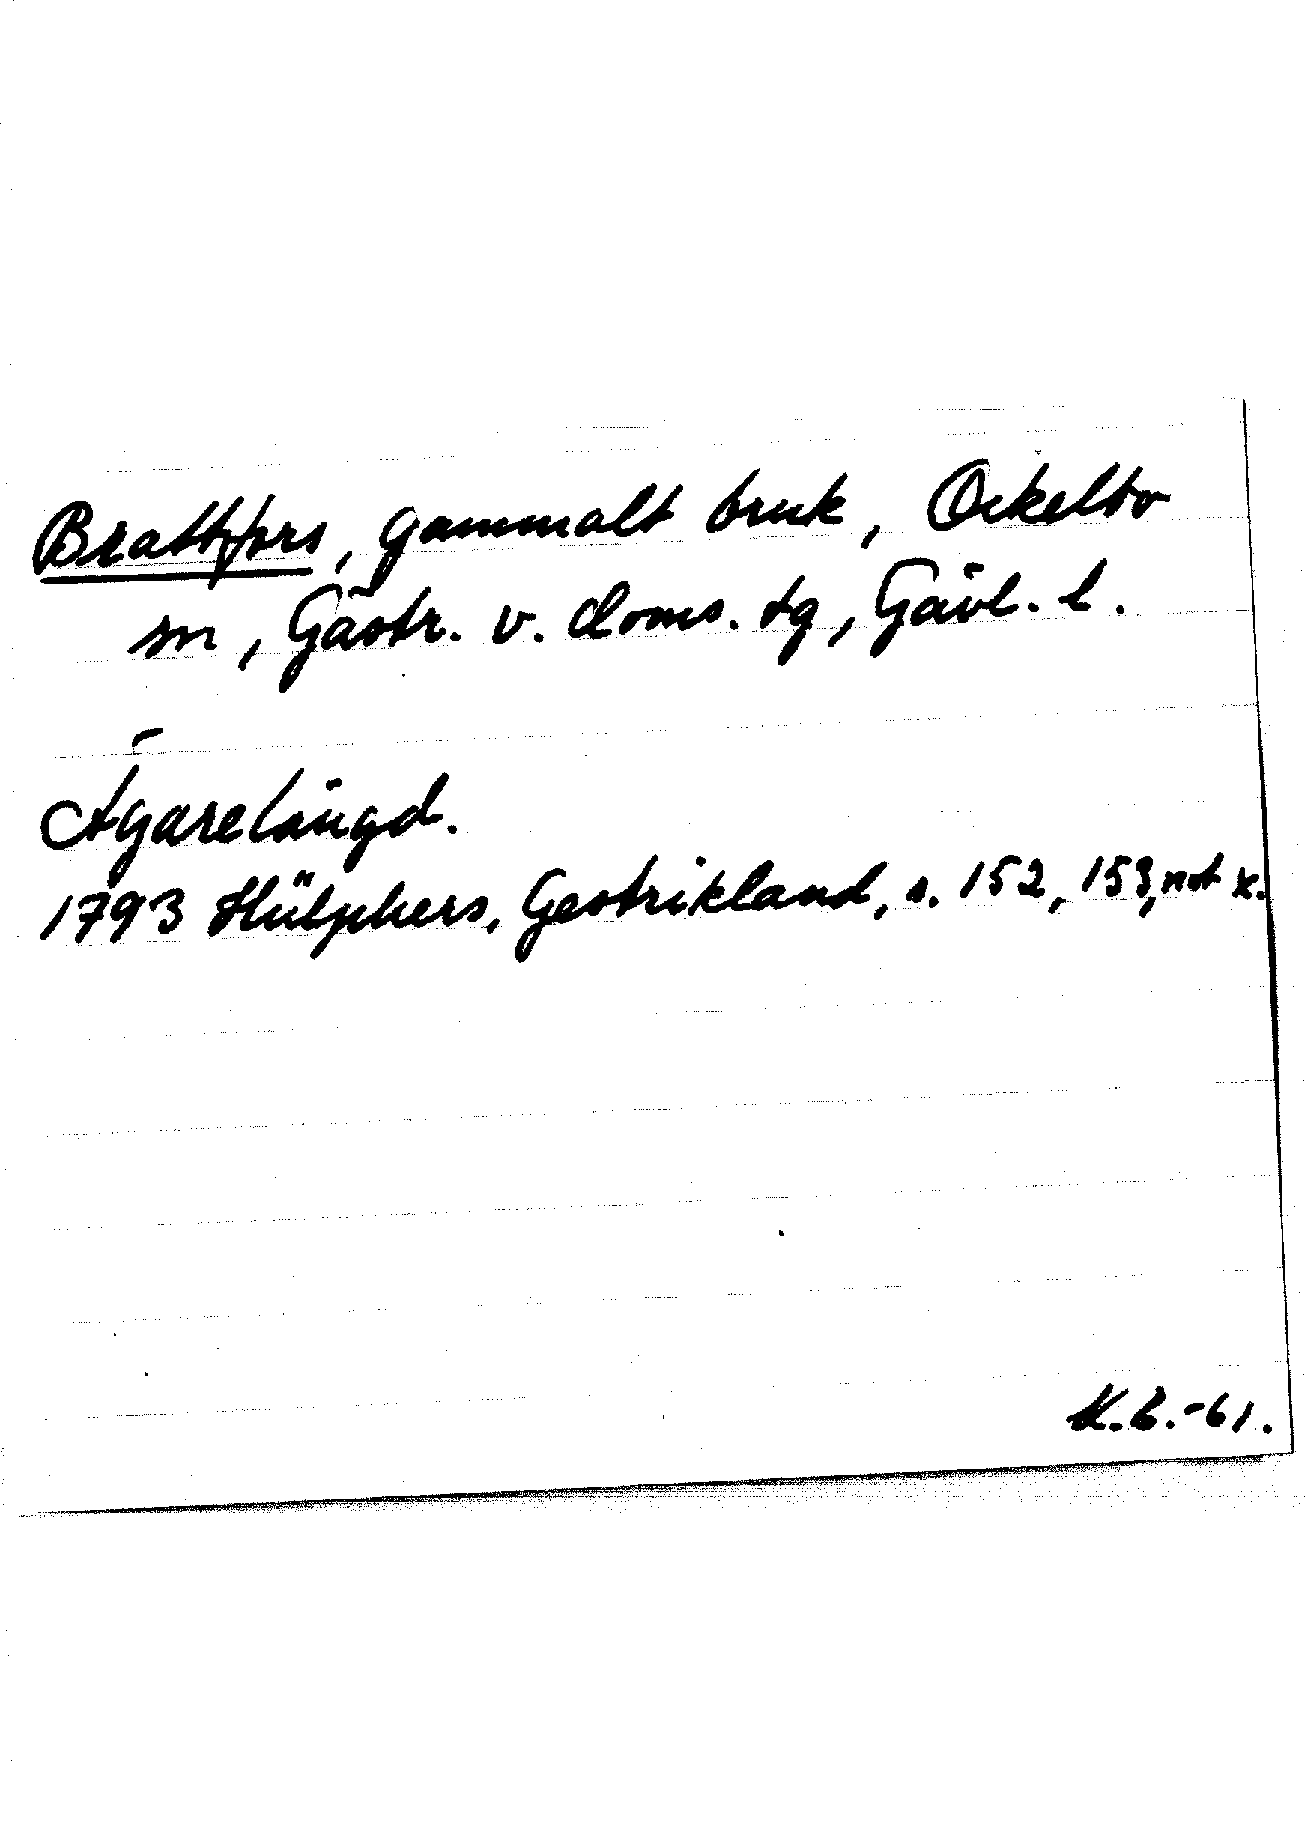 Brattfors, gammalt bruk, Ockelbo
sn, Gästr. v. doms. tg, Gävl. l.
Ägarelängd.
1793 Hülphers, Gestrikland, s. 152, 153, not x.
K.B.-61.